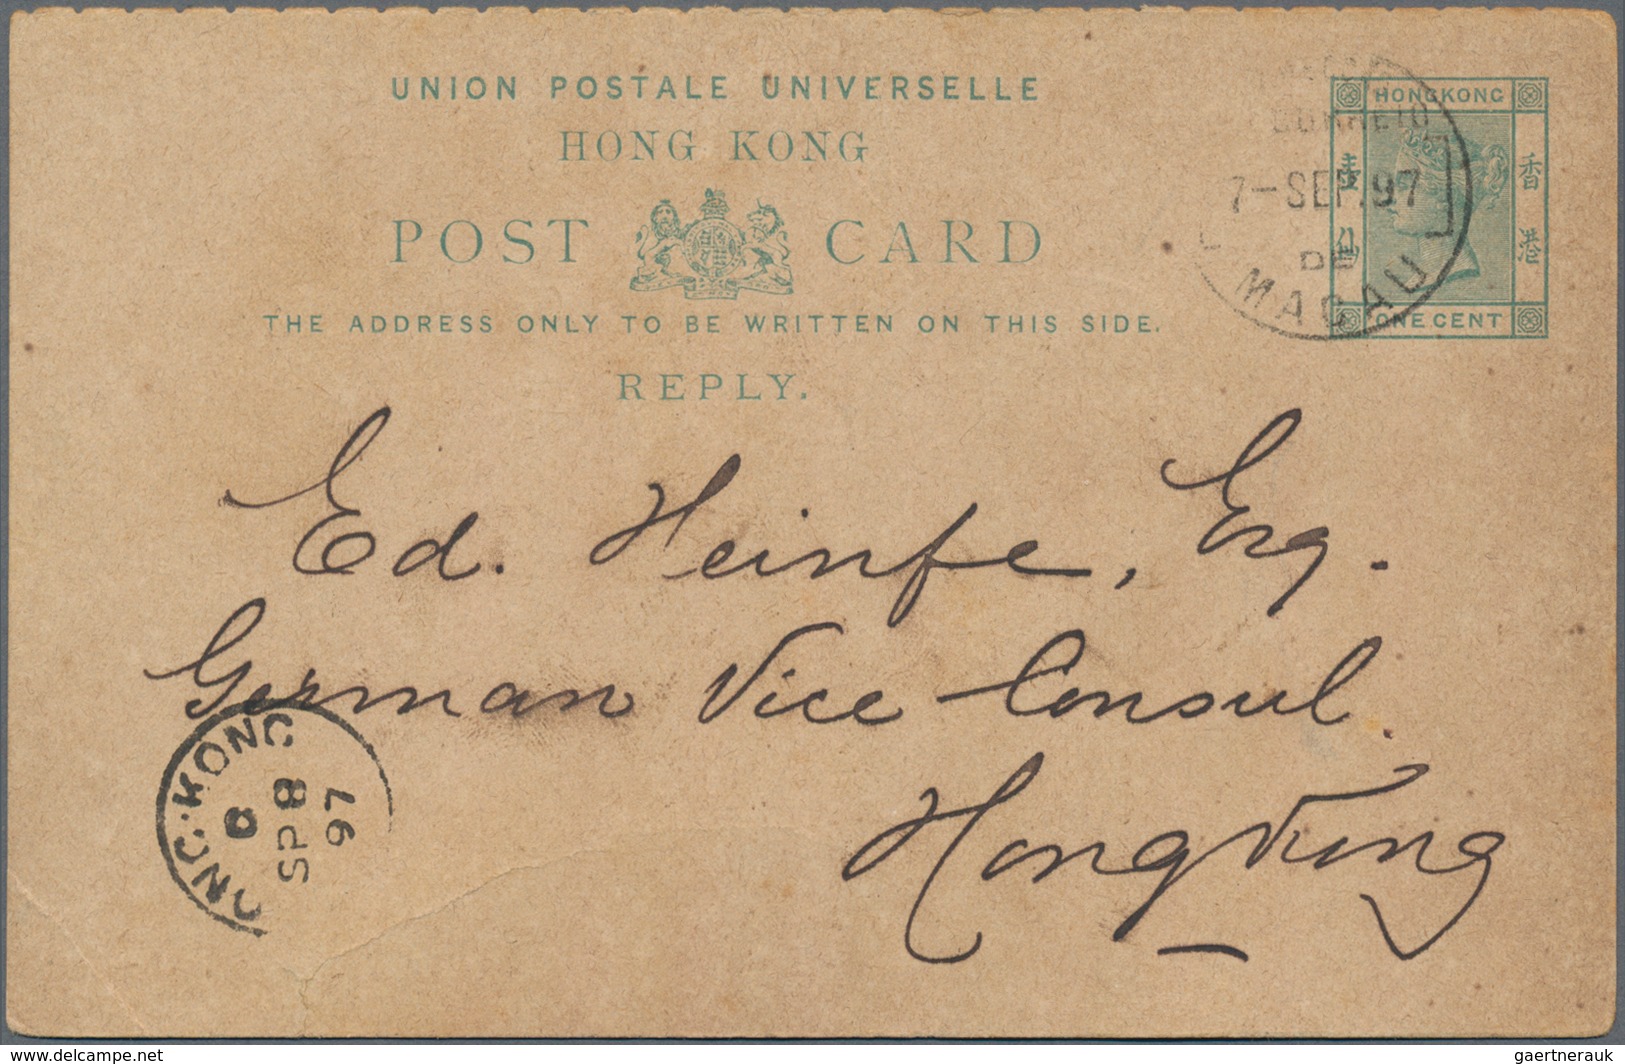 UNION POSTALE UNIVERSELLE
HONG KONG
POST CARD
THE ADDRESS ONLY TO BE WRITTEN ON THIS SIDE.
REPLY.
HONGKONG
香港
壹仙
ONE CENT
CORREIO
7-SEP.97
DE
MACAU
Ed. Heinfe, Esq.
German Vice Consul.
Hongkong
ONG.KONG
SP 8
97
www.delcampe.net
gaertnerauk